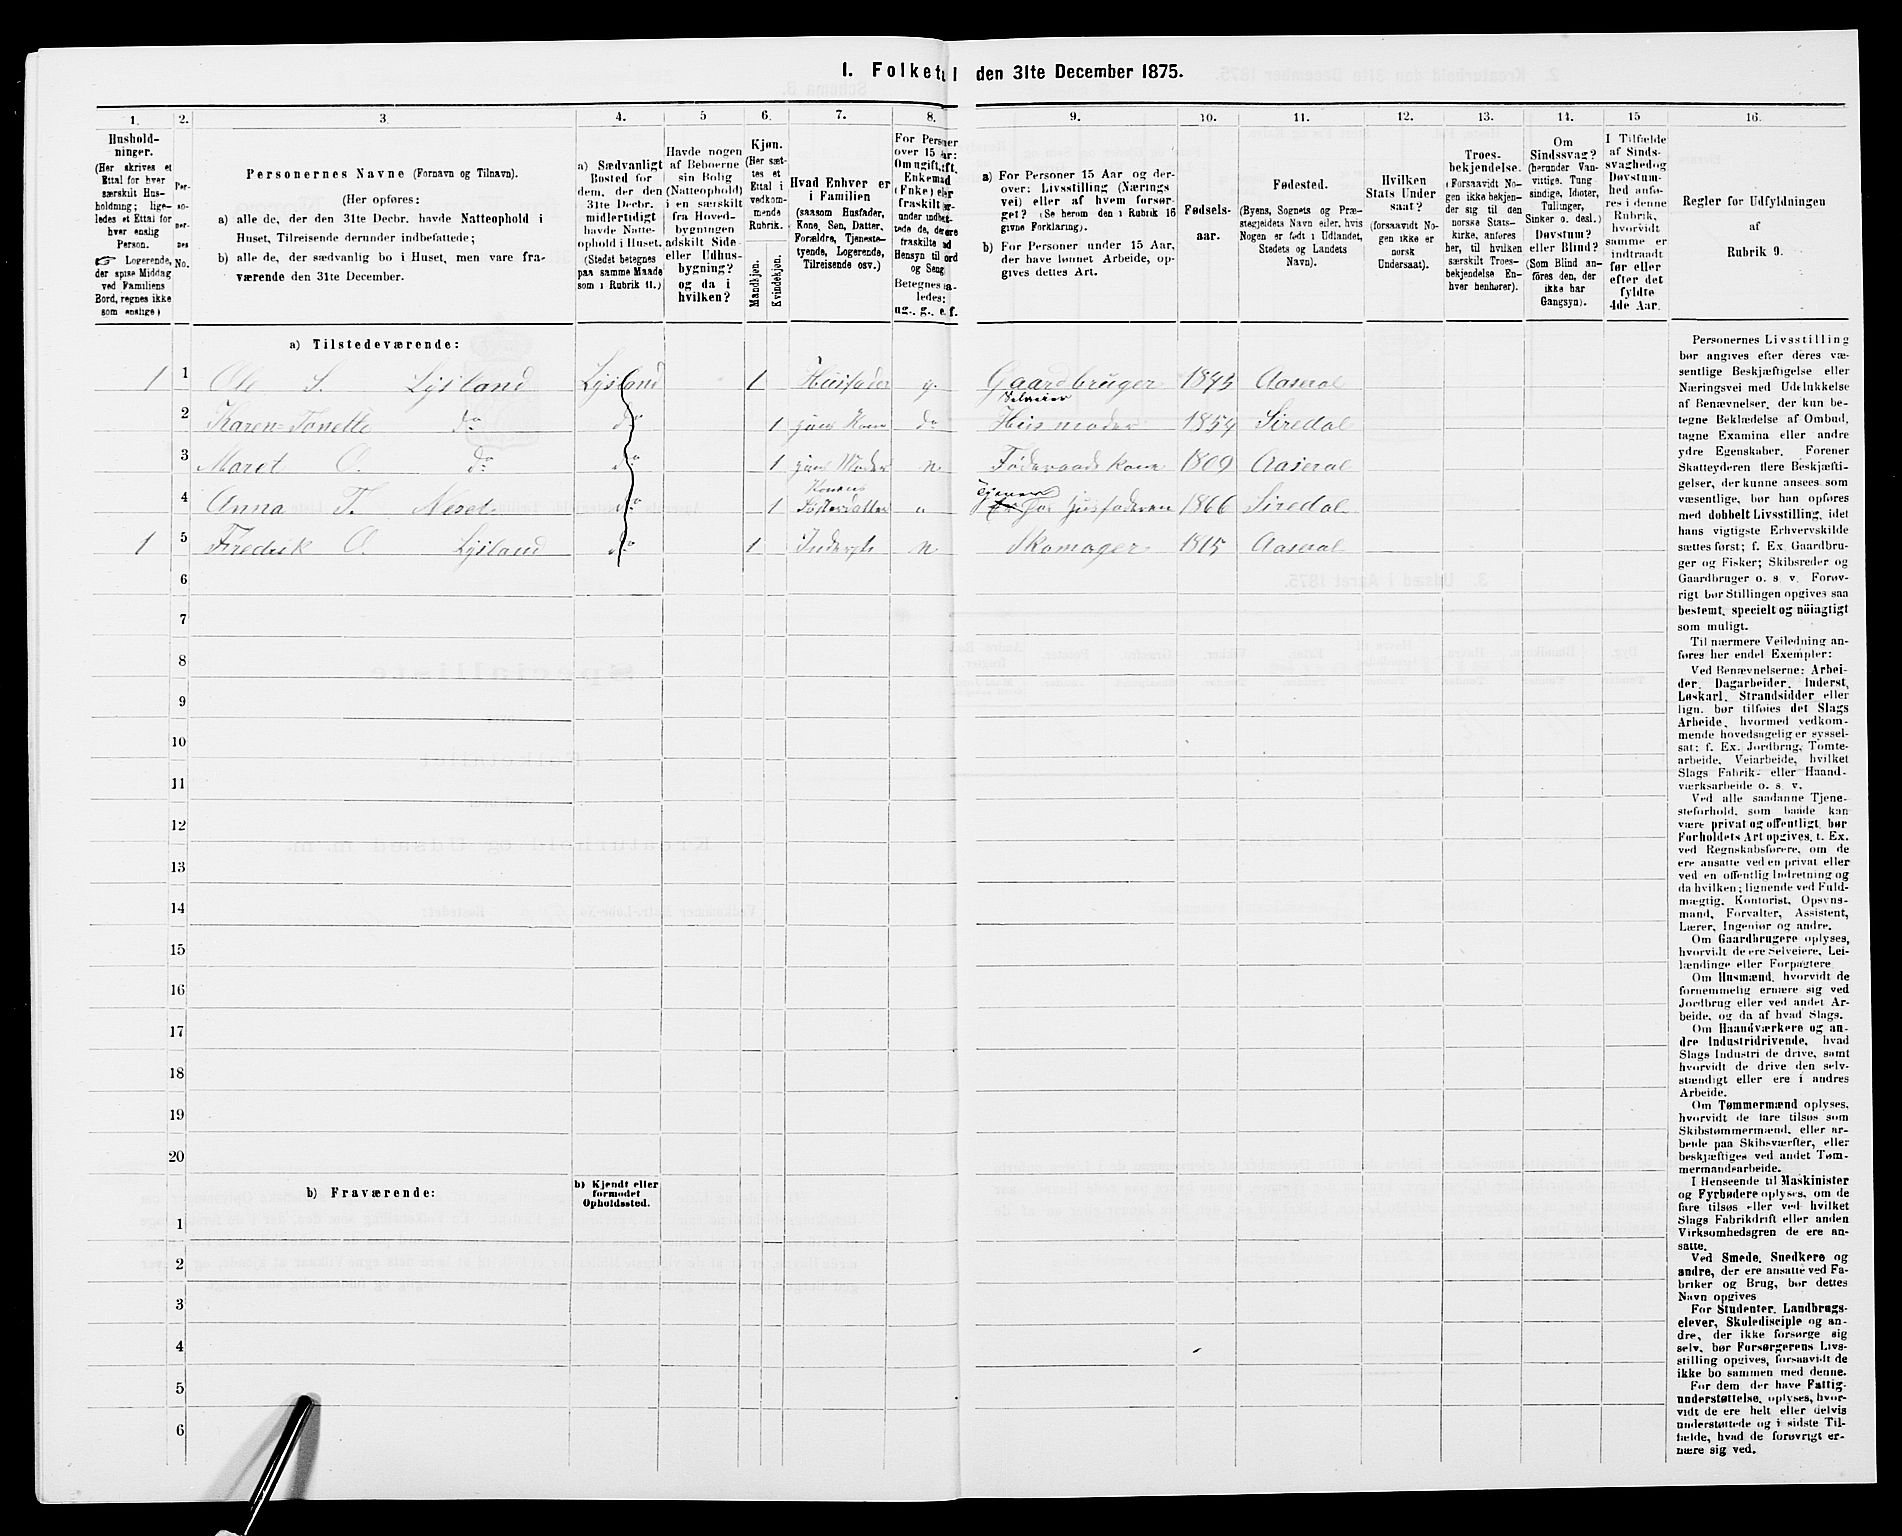 I. Folketal den 31te December 1875.
1. 2. 3. 4. 5 6. 7. 8. 9. 10. 11. 12. 13. 14. 15 16.
Hushold-
ninger.
(Her skrives et
Ettal for hver
særskilt Hus-
holdning; lige-
ledes et Ettal for
hver enslig
Person.
☞ Logerende,
der spise Middag
ved Familiens
Bord, regnes ikke
som enslige)
Per-
so-
ner-
nes
No.
Personernes Navne (Fornavn og Tilnavn).
(Her opføres:
a) alle de, der den 31te Decbr. havde Natteophold i
Huset, Tilreisende derunder indbefattede;
b) alle de, der sædvanlig bo i Huset, men vare fra-
værende den 31te December.
a) Sædvanligt
Bosted for
dem, der den
31te Decbr.
midlertidigt
havde Natte-
ophold i Huset.
(Stedet betegnes
paa samme Maade
som i Rubrik 11.)
Havde nogen
af Beboerne
sin Bolig
(Natteophold)
i en særskilt
fra Hoved-
bygningen
adskilt Side-
eller Udhus-
bygning?
og da i
hvilken?
Kjøn.
(Her sæt-
tes et
Ettal i
vedkom-
mende
Rubrik.
Mandkjøn.
Kvindekjøn.
Hvad Enhver er
i Familien
(saasom Husfader,
Kone, Søn, Datter,
Forældre, Tjeneste-
tyende, Logerende,
Tilreisende osv.)
For Personer
over 15 Aar:
Om ugift, gift,
Enkemand
(Enke) eller
fraskilt
Betegnes saa-
ledes:
ug., g., e. f.
a) For Personer 15 Aar og der-
over: Livsstilling (Nærings
vei) eller af hvem forsør-
get? (Se herom den i Rubrik 16
givne Forklaring).
b) For Personer under 15 Aar,
der have lønnet Arbeide, op-
gives dettes Art.
Fødsels-
aar.
Fødested.
(Byens, Sognets og Præ-
stegjeldets Navn eller, hvis
Nogen er født i Udlandet,
Stedets og Landets
Navn).
Hvilken
Stats Under
saat?
(forsaavidt No-
gen ikke er
norsk
Undersaat).
Troes-
bekjendelse.
(Forsaavidt No-
gen ikke bekjen-
der sig til den
norske Stats-
kirke, anføres
her, til hvilken
særskilt Troes-
bekjendelse En-
hver henhører).
Om
Sindssvag?
(herunder Van-
vittige, Tung
sindige, Idioter,
Tullinger,
Sinker o. desl.)
Døvstum?
eller Blind?
(Som Blind an-
føres den, der
ikke har
Gangsyn).
I Tilfælde
af Sinds-
svaghed og
Døvstum-
hed anfø-
res i denne
Rubrik,
hvorvidt
samme er
indtraadt
før eller
efter det
fyldte
4de Aar.
Regler for Udfyldningen
af
Rubrik 9.
a) Tilstedeværende:
1 1 Ole S. Lysland Lysland 1 Husfader g. Gaardbruger Selveier 1843 Aaseral
2 Karen Tonette do do 1 hans Kone do Husmoder 1854 Siredal
3 Maret O. do do 1 hans Moder Føderaads kone 1809 Aaseral
4 Anna T. Neset do 1 Konens Søsterdatter Tjener for husfaderen 1866 Siredal
1 5 Fredrik O. Lysland do 1 Inderst Skomager 1815 Aaseral
6
7
8
9
10
11
12
13
14
15
16
17
18
19
20
b) Fraværende:
b) Kjendt eller
formodet
Opholdssted.
1
2
3
4
5
6
Personernes Livsstilling
bør angives efter deres væ-
sentlige Beskjæftigelse eller
Næringsvei med Udelukkelse
af Benævnelser, der kun be-
tegne Beklædelse af Ombud,
tagne Examina eller andre
ydre Egenskaber. Forener
Skatteyderen flere Beskjæfti-
gelser, der kunne ansees som
væsentlige, bør han opføres
med dobbelt Livsstilling, idet
hans vigtigste Erhvervskilde
sættes først; f. Ex. Gaardbru-
ger og Fisker; Skibsreder og
Gaardbruger o. s. v. Forøv-
rigt bør Stillingen opgives saa
bestemt, specielt og nöiagtigt
som muligt.
Til nærmere Veiledning an-
føres her endel Exempler:
Ved Benævnelserne: Arbei-
der, Dagarbeider, Inderst,
Løskarl, Strandsidder eller
lign. bør tilføies det Slags
Arbeide, hvormed vedkom-
mende hovedsagelig er syssel-
sat; f. Ex. Jordbrug, Tomte-
arbeide, Veiarbeide, hvilket
Slags Fabrik- eller Haand-
værksarbeide o. s. v.
Ved alle saadanne Tjene-
steforhold, som baade kan
være privat og offentligt, bør
Forholdets Art opgives, t. Ex.
ved Regnskabsførere, om de
ere ansatte ved en privat eller
ved en offentlig Indretning og
da hvilken; lignende ved Fuld-
mægtig, Kontorist, Opsyns-
mand, Forvalter, Assistent,
Lærer, Ingeniør og andre.
Om Gaardbrugere oplyses,
hvorvidt de ere Selveiere, Lei-
lændinge eller Forpagtere
Om Husmænd, hvorvidt de
fornemmelig ernære sig ved
Jordbrug eller ved andet Ar-
beide, og da af hvad Slags.
Om Haandværkere og an-
dre Industridrivende, hvad
Slags Industri de drive, samt
hvorvidt de drive den selv-
stændigt eller ere i andres
Arbeide.
Om Tømmermænd oplyses,
hvorvidt de fare tilsøs som
Skibstømmermænd, eller ar-
beide paa Skibsværfter, eller
beskjæftiges ved andet Tøm-
mermandsarbeide.
I Henseende til Maskinister
og Fyrbødere oplyses, om de
fare tilsøs eller ved hvilket
Slags Fabrikdrift eller anden
Virksomhedsgren de ere an-
satte.
Ved Smede, Snedkere og
andre, der ere ansatte ved Fa-
briker og Brug, bør dettes
Navn opgives
For Studenter, Landbrugs-
elever, Skoledisciple og an-
dre, der ikke forsørge sig
selv, bør Forsørgerens Livs-
stilling opgives, forsaavidt de
ikke bo sammen med denne.
For dem der have Fattig-
understøttelse, oplyses, hvor-
vidt de ere helt eller delvis
understøttede og i sidste Til-
fælde, hvad de forøvrigt er-
nære sig ved.